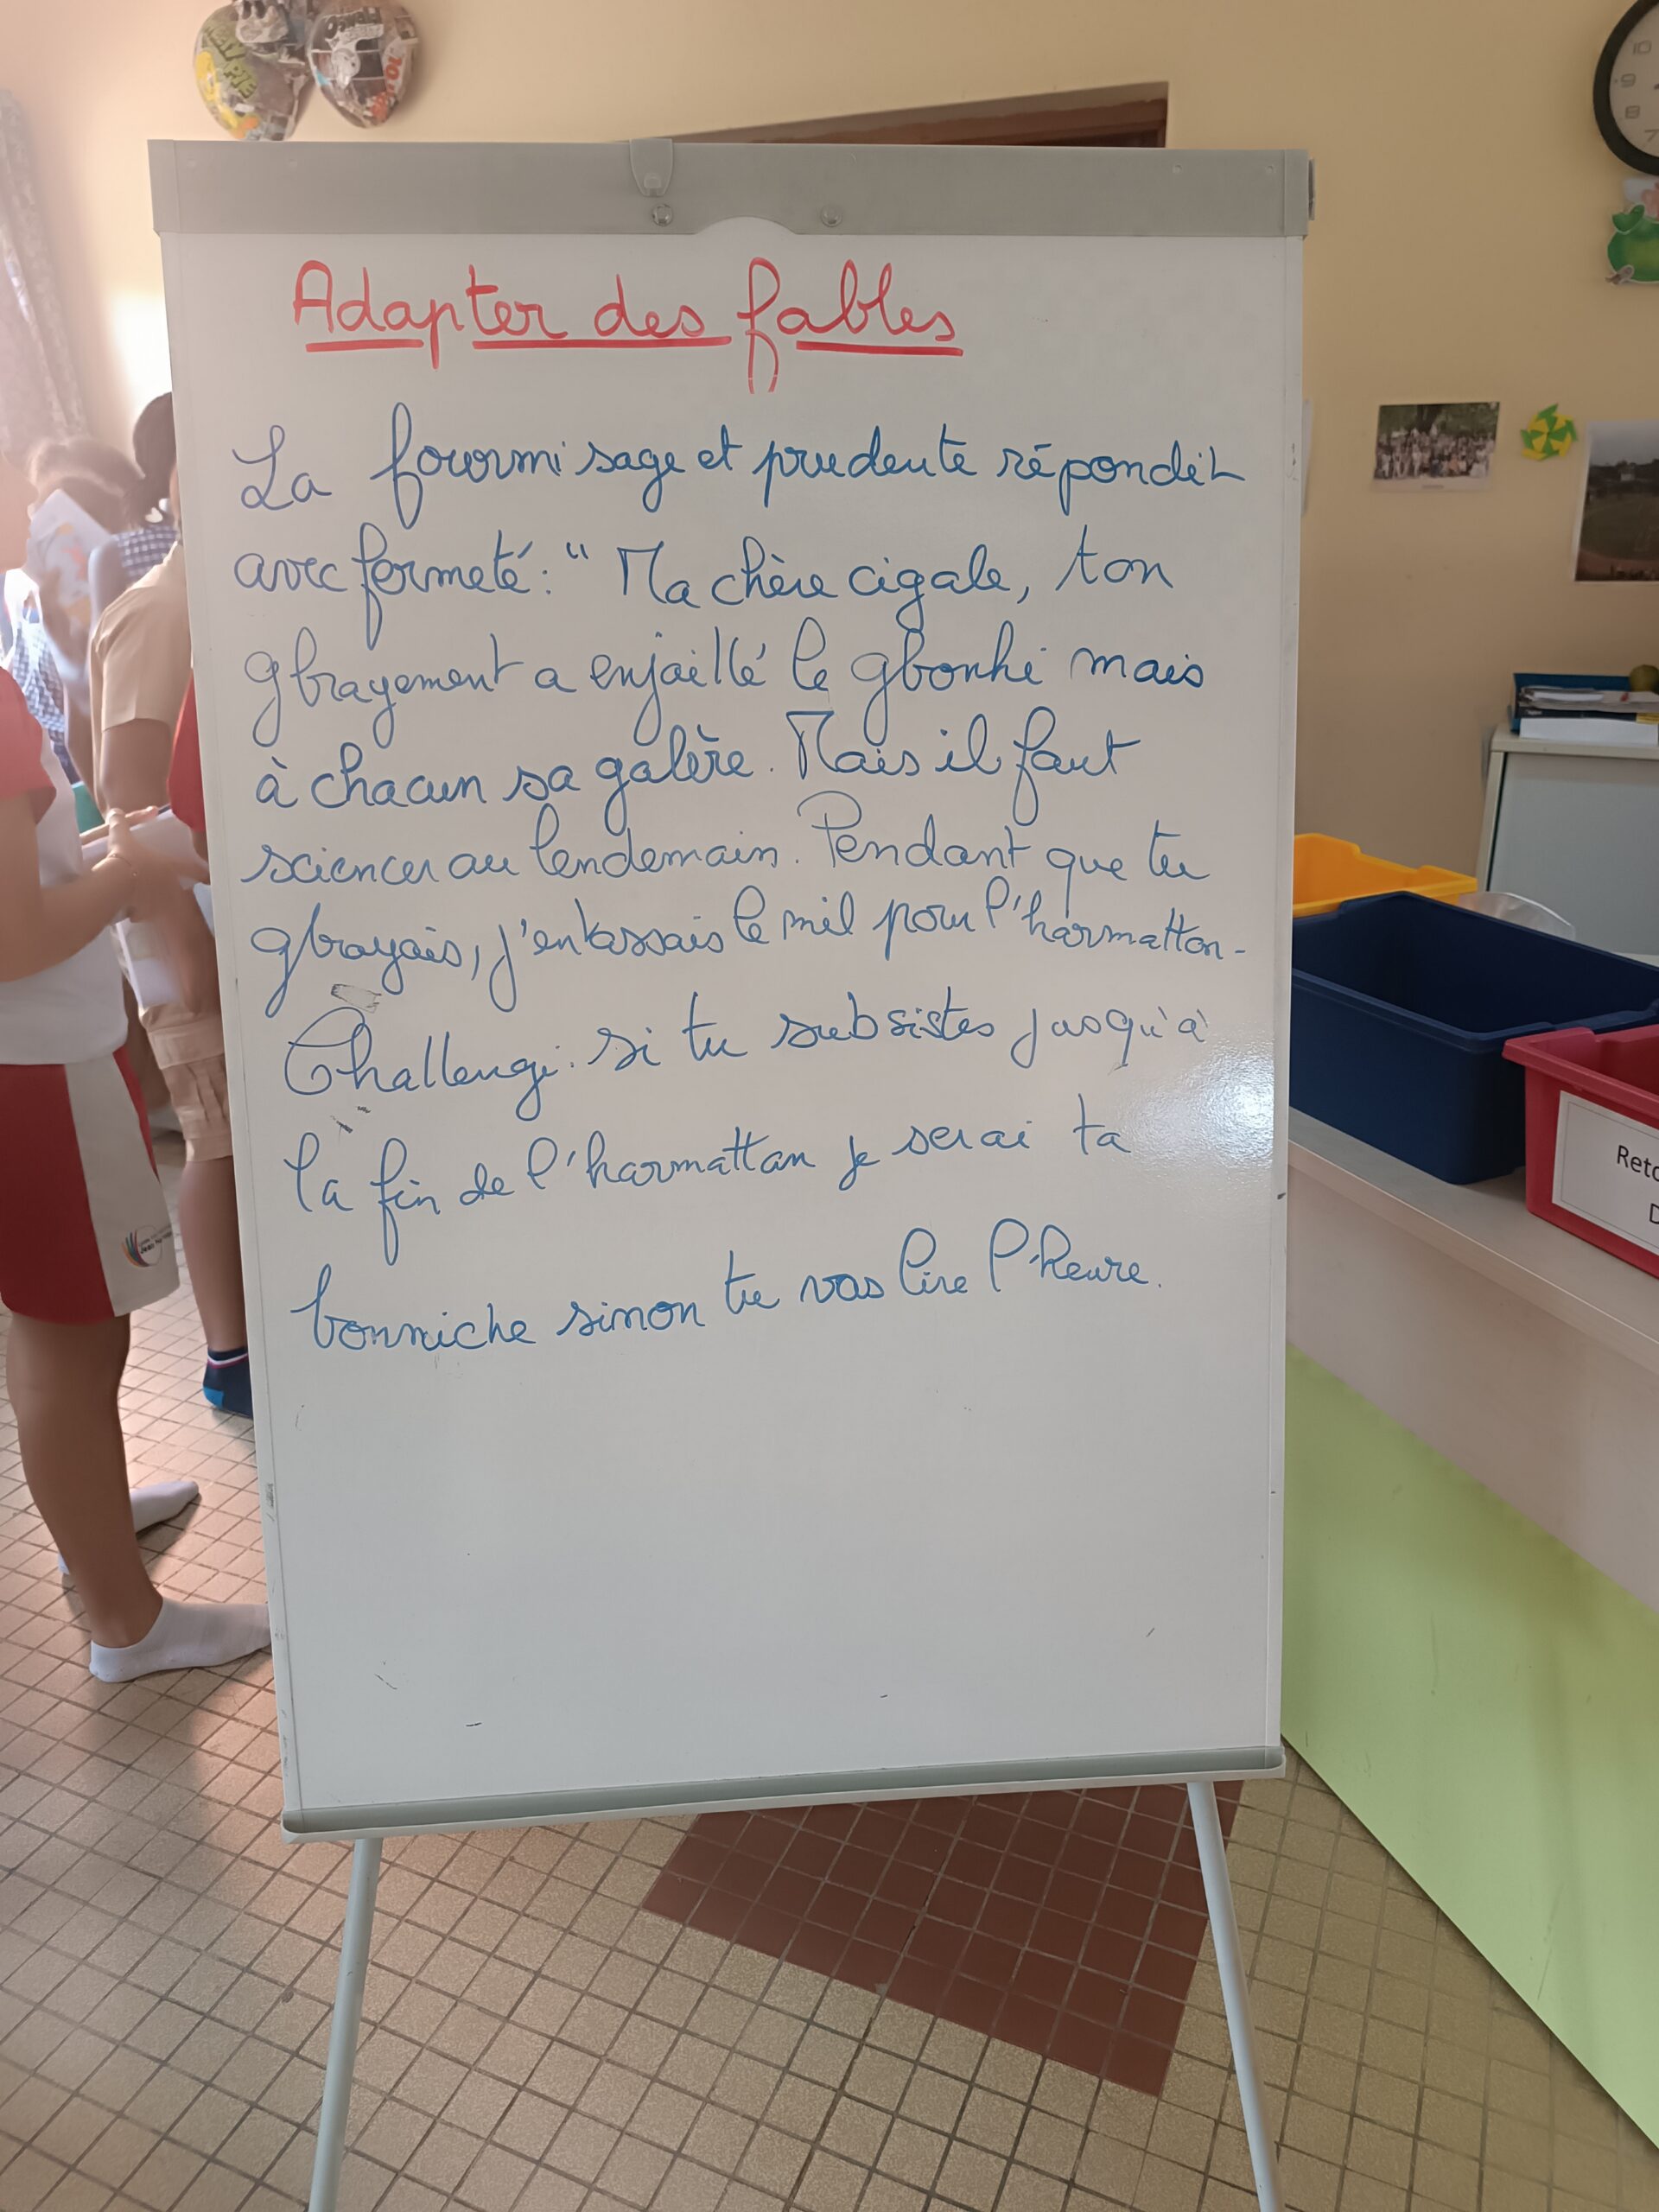 Adapter des fables
La fourmi sage et prudente répondit
avec fermeté : " Ma chère cigale, ton
gbrayement a enjaillé le gbonhi mais
à chacun sa galère. Mais il faut
sciencer au lendemain. Pendant que tu
gbrayais, j'entassais le mil pour l'harmattan.
Challenge : si tu subsistes jusqu'à
la fin de l'harmattan je serai ta
bonniche sinon tu vas lire l'heure.
10
9
8
7
Reto
D